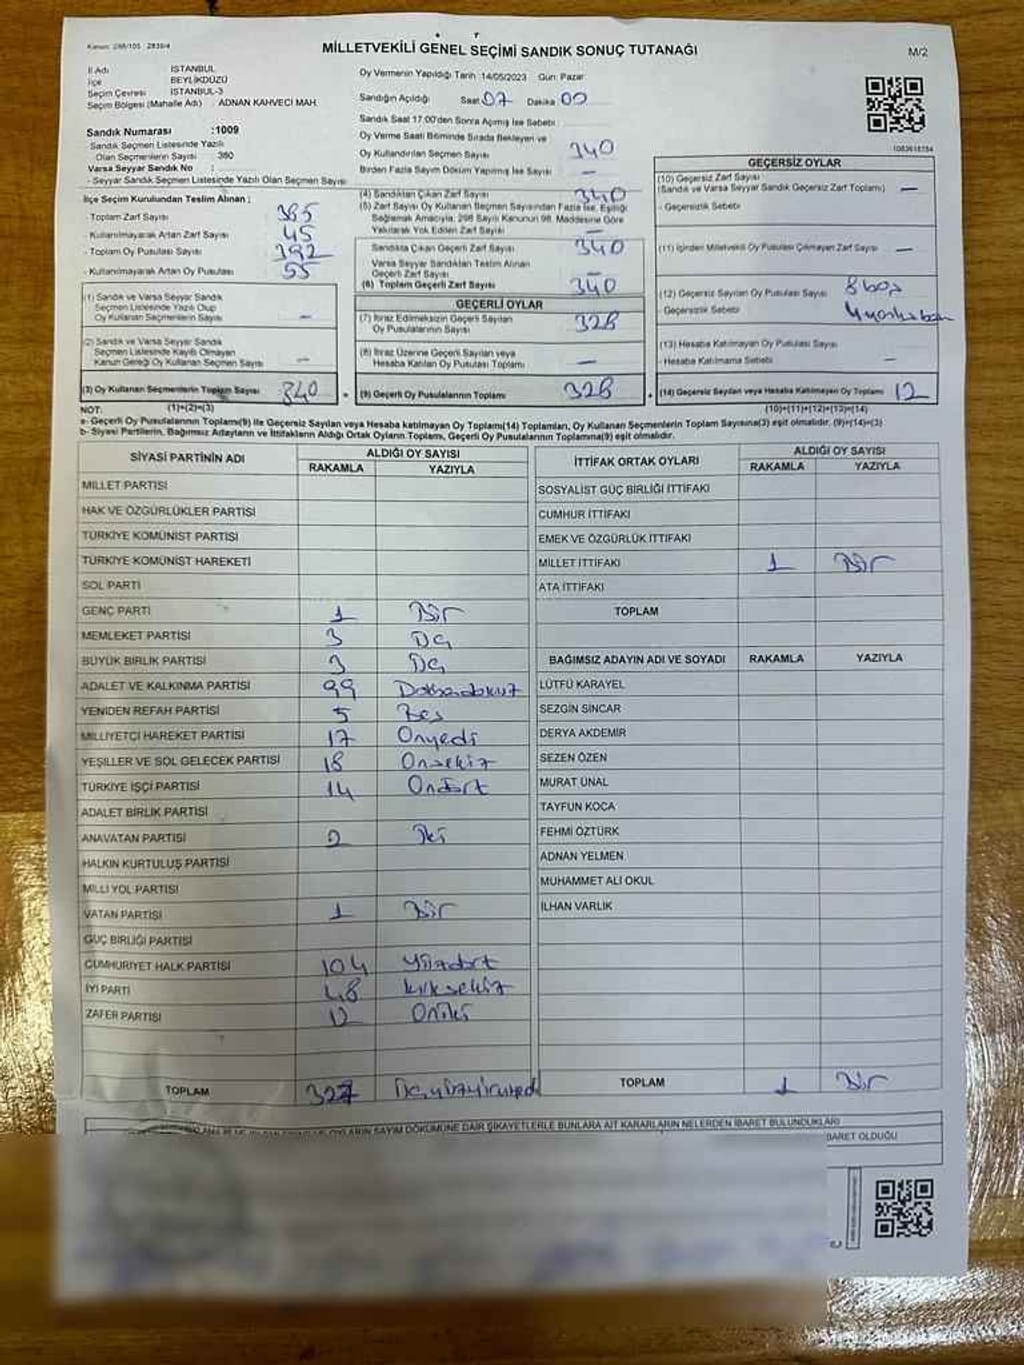 Kanun: 298/105 2839/4
MİLLETVEKİLİ GENEL SEÇİMİ SANDIK SONUÇ TUTANAĞI
M/2
İl Adı İSTANBUL
İlçe BEYLİKDÜZÜ
Seçim Çevresi İSTANBUL-3
Seçim Bölgesi (Mahalle Adı) ADNAN KAHVECİ MAH.
Sandık Numarası :1009
- Sandık Seçmen Listesinde Yazılı
Olan Seçmenlerin Sayısı : 380
Varsa Seyyar Sandık No :
- Seyyar Sandık Seçmen Listesinde Yazılı Olan Seçmen Sayısı
İlçe Seçim Kurulundan Teslim Alınan ;
- Toplam Zarf Sayısı 385
- Kullanılmayarak Artan Zarf Sayısı 45
- Toplam Oy Pusulası Sayısı 392
- Kullanılmayarak Artan Oy Pusulası 55
(1) Sandık ve Varsa Seyyar Sandık
Seçmen Listesinde Yazılı Olup
Oy Kullanan Seçmenlerin Sayısı –
(2) Sandık ve Varsa Seyyar Sandık
Seçmen Listesinde Kayıtlı Olmayan
Kanun Gereği Oy Kullanan Seçmen Sayısı –
(3) Oy Kullanan Seçmenlerin Toplam Sayısı 340
Oy Vermenin Yapıldığı Tarih 14/05/2023 Gün: Pazar
Sandığın Açıldığı Saat 07 Dakika 00
Sandık Saat 17.00'den Sonra Açılmış İse Sebebi
Oy Verme Saati Bitiminde Sırada Bekleyen ve
Oy Kullandırılan Seçmen Sayısı 340
Birden Fazla Sayım Döküm Yapılmış İse Sayısı –
(4) Sandıktan Çıkan Zarf Sayısı 340
(5) Zarf Sayısı Oy Kullanan Seçmen Sayısından Fazla İse, Eşitliği
Sağlamak Amacıyla, 298 Sayılı Kanunun 98. Maddesine Göre
Yakılarak Yok Edilen Zarf Sayısı –
Sandıkta Çıkan Geçerli Zarf Sayısı 340
Varsa Seyyar Sandıktan Teslim Alınan
Geçerli Zarf Sayısı –
(6) Toplam Geçerli Zarf Sayısı 340
GEÇERLİ OYLAR
(7) İtiraz Edilmeksizin Geçerli Sayılan
Oy Pusulalarının Sayısı 328
(8) İtiraz Üzerine Geçerli Sayılan veya
Hesaba Katılan Oy Pusulası Toplamı –
(9) Geçerli Oy Pusulalarının Toplamı 328
1083618784
GEÇERSİZ OYLAR
(10) Geçersiz Zarf Sayısı
(Sandık ve Varsa Seyyar Sandık Geçersiz Zarf Toplamı) –
- Geçersizlik Sebebi
(11) İçinden Milletvekili Oy Pusulası Çıkmayan Zarf Sayısı –
(12) Geçersiz Sayılan Oy Pusulası Sayısı 8 boş
- Geçersizlik Sebebi
(13) Hesaba Katılmayan Oy Pusulası Sayısı
- Hesaba Katılmama Sebebi –
(14) Geçersiz Sayılan veya Hesaba Katılmayan Oy Toplamı 12
NOT: (1)+(2)=(3) (10)+(11)+(12)+(13)=(14)
a- Geçerli Oy Pusulalarının Toplamı(9) ile Geçersiz Sayılan veya Hesaba katılmayan Oy Toplamı(14) Toplamları, Oy Kullanan Seçmenlerin Toplam Sayısına(3) eşit olmalıdır. (9)+(14)=(3)
b- Siyasi Partilerin, Bağımsız Adayların ve İttifakların Aldığı Ortak Oyların Toplamı, Geçerli Oy Pusulalarının Toplamına(9) eşit olmalıdır.
SİYASİ PARTİNİN ADI ALDIĞI OY SAYISI
RAKAMLA YAZIYLA
MİLLET PARTİSİ
HAK VE ÖZGÜRLÜKLER PARTİSİ
TÜRKİYE KOMÜNİST PARTİSİ
TÜRKİYE KOMÜNİST HAREKETİ
SOL PARTİ
GENÇ PARTİ 1 Bir
MEMLEKET PARTİSİ 3 Üç
BÜYÜK BİRLİK PARTİSİ 3 Üç
ADALET VE KALKINMA PARTİSİ 99 Doksandokuz
YENİDEN REFAH PARTİSİ 5 Beş
MİLLİYETÇİ HAREKET PARTİSİ 17 Onyedi
YEŞİLLER VE SOL GELECEK PARTİSİ 18 Onsekiz
TÜRKİYE İŞÇİ PARTİSİ 14 Ondört
ADALET BİRLİK PARTİSİ
ANAVATAN PARTİSİ 2 İki
HALKIN KURTULUŞ PARTİSİ
MİLLİ YOL PARTİSİ
VATAN PARTİSİ 1 Bir
GÜÇ BİRLİĞİ PARTİSİ
CUMHURİYET HALK PARTİSİ 104 Yüzdört
İYİ PARTİ 48 kırksekiz
ZAFER PARTİSİ 12 Oniki
TOPLAM 327 Üçyüzyirmiyedi
İTTİFAK ORTAK OYLARI ALDIĞI OY SAYISI
RAKAMLA YAZIYLA
SOSYALİST GÜÇ BİRLİĞİ İTTİFAKI
CUMHUR İTTİFAKI
EMEK VE ÖZGÜRLÜK İTTİFAKI
MİLLET İTTİFAKI 1 Bir
ATA İTTİFAKI
TOPLAM
BAĞIMSIZ ADAYIN ADI VE SOYADI RAKAMLA YAZIYLA
LÜTFÜ KARAYEL
SEZGİN SİNCAR
DERYA AKDEMİR
SEZEN ÖZEN
MURAT ÜNAL
TAYFUN KOCA
FEHMİ ÖZTÜRK
ADNAN YELMEN
MUHAMMET ALİ OKUL
İLHAN VARLIK
TOPLAM 1 Bir
OYLARIN SAYIM DÖKÜMÜNE DAİR ŞİKAYETLERLE BUNLARA AİT KARARLARIN NELERDEN İBARET BULUNDUKLARI
İBARET OLDUĞU